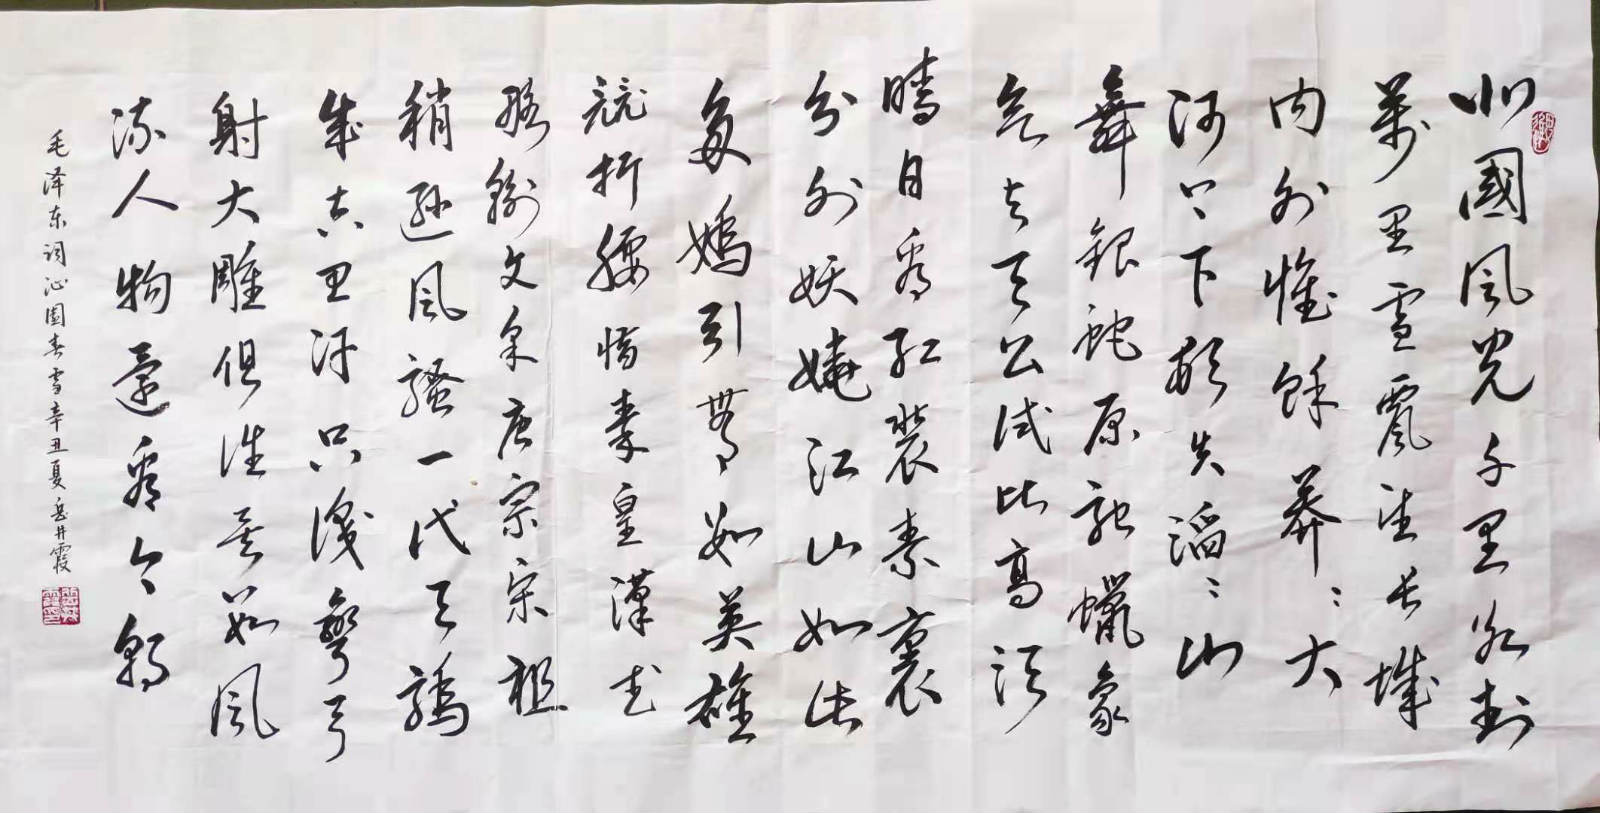 北國風光千里冰封
萬里雪飄望長城
内外惟餘莽々大
河上下頓失滔々山
舞銀蛇原馳蠟象
欲与天公试比高须
晴日看红裝素裹
分外妖嬈江山如此
多嬌引無數英雄
競折腰惜秦皇漢武
略輸文采唐宗宋祖
稍遜風騷一代天驕
成吉思汗只識彎弓
射大雕俱往矣數風
流人物還看今朝
毛泽东词沁園春雪辛丑夏岳井霞